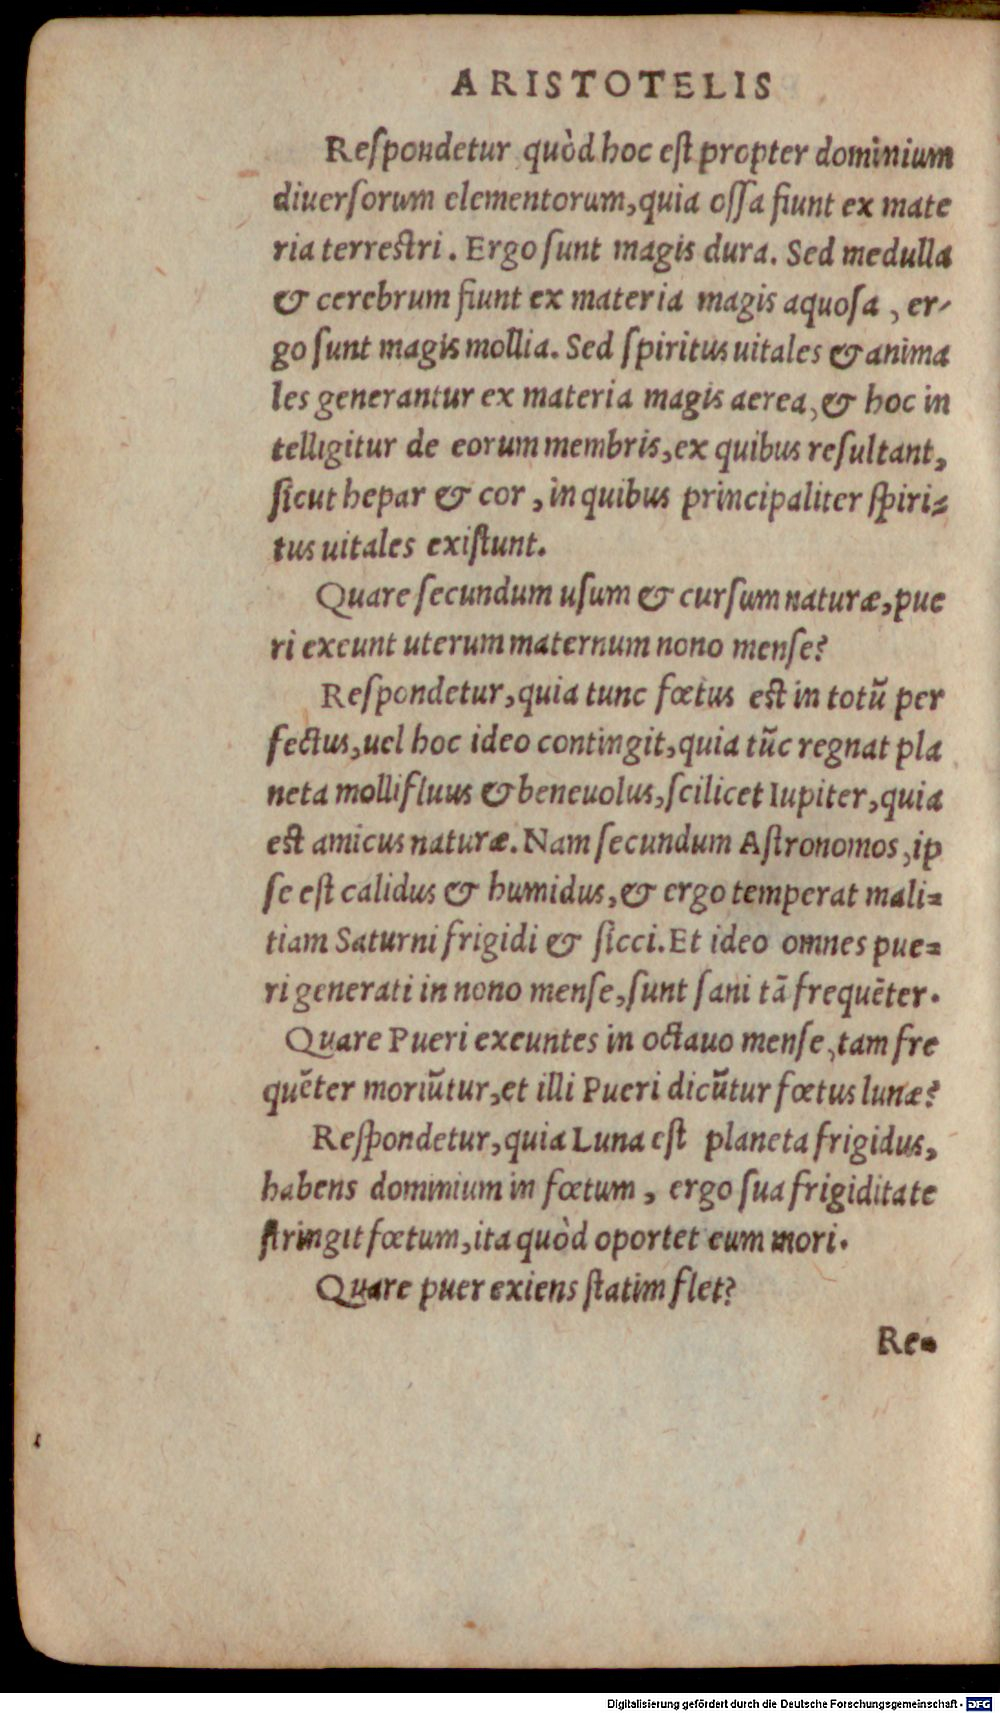 ARISTOTELIS
Reſpondetur quòd hoc eſt propter dominium
diuerſorum elementorum, quia oſſa fiunt ex mate
ria terreſtri. Ergo ſunt magis dura. Sed medulla
& cerebrum fiunt ex materia magis aquoſa, er-
go ſunt magis mollia. Sed ſpiritus uitales & anima
les generantur ex materia magis aerea, & hoc in
telligitur de eorum membris, ex quibus reſultant,
ſicut hepar & cor, in quibus principaliter ſpiri-
tus uitales exiſtunt.
Quare ſecundum uſum & curſum naturæ, pue
ri exeunt uterum maternum nono menſe?
Reſpondetur, quia tunc fœtus eſt in totũ per
fectus, uel hoc ideo contingit, quia tũc regnat pla
neta mollifluus & beneuolus, ſcilicet Iupiter, quia
eſt amicus naturæ. Nam ſecundum Aſtronomos, ip
ſe eſt calidus & humidus, & ergo temperat mali-
tiam Saturni frigidi & ſicci. Et ideo omnes pue-
ri generati in nono menſe, ſunt ſani tã frequẽter.
Quare Pueri exeuntes in octauo menſe, tam fre
quẽter moriũtur, et illi Pueri dicũtur fœtus lunæ?
Reſpondetur, quia Luna eſt planeta frigidus,
habens dominium in fœtum, ergo ſua frigiditate
ſtringit fœtum, ita quòd oportet eum mori.
Quare puer exiens ſtatim flet?
Re-
Digitalisierung gefördert durch die Deutsche Forschungsgemeinschaft - DFG